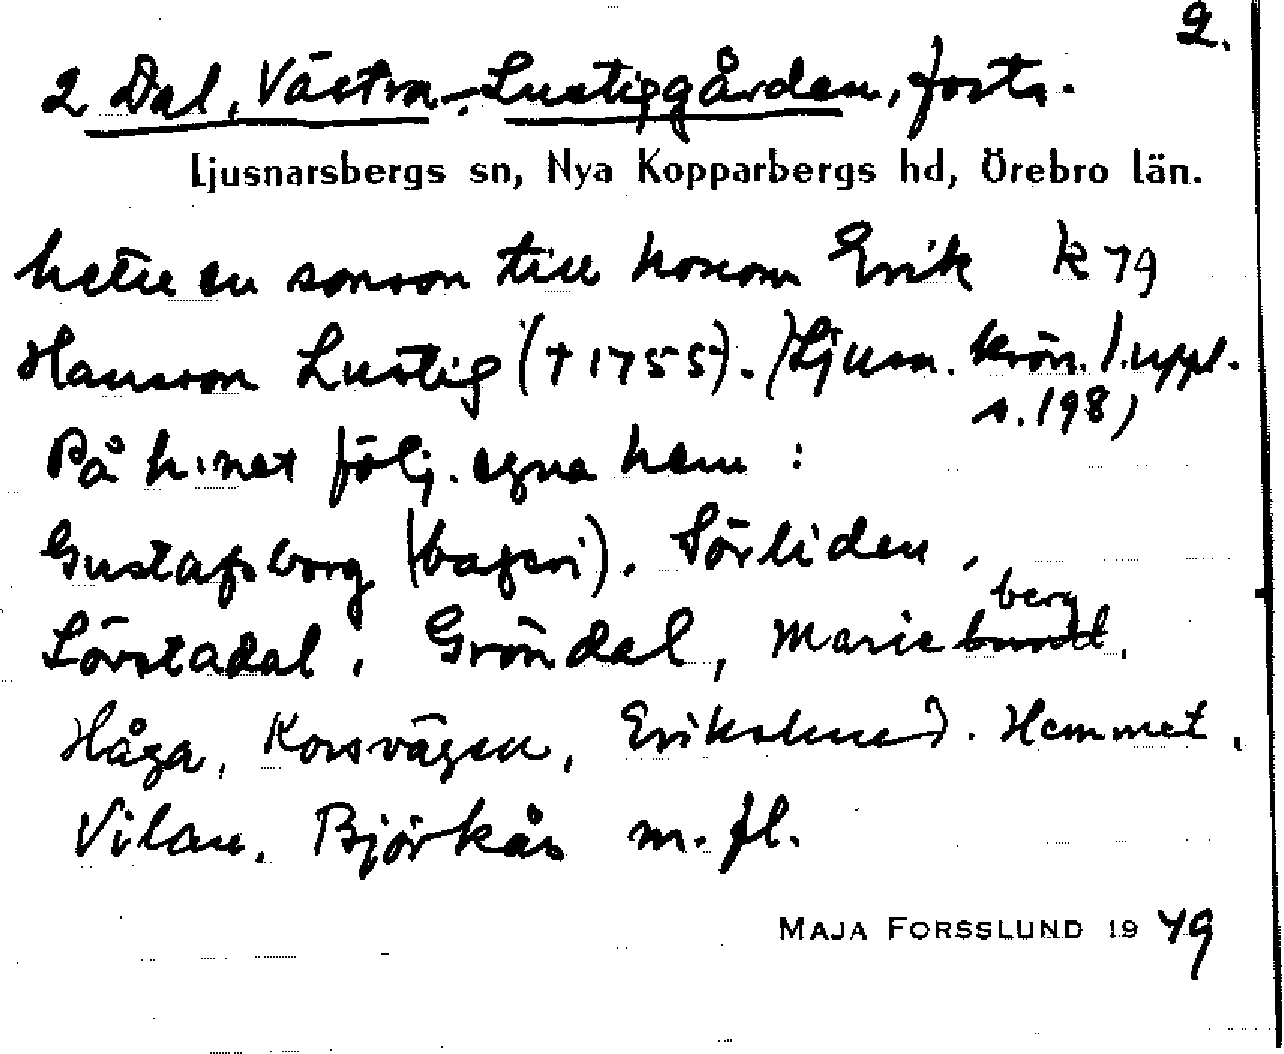 2.
2 Dal, Västra, Lustiggården, forts.
Ljusnarsbergs sn, Nya Kopparbergs hd, Örebro län.
hette en sonson till honom Erik k 79
Hansson Lustig († 1755). (Ljusn. krön. 1. uppl.
s. 198)
På h:net följ. egna hem:
Gustafsborg (bageri). Sörliden,
Sörstadal, Gröndal, Marie berg
Håga, Korsvägen, Erikslund. Hemmet,
Vilan, Björkås m. fl.
MAJA FORSSLUND 19 49